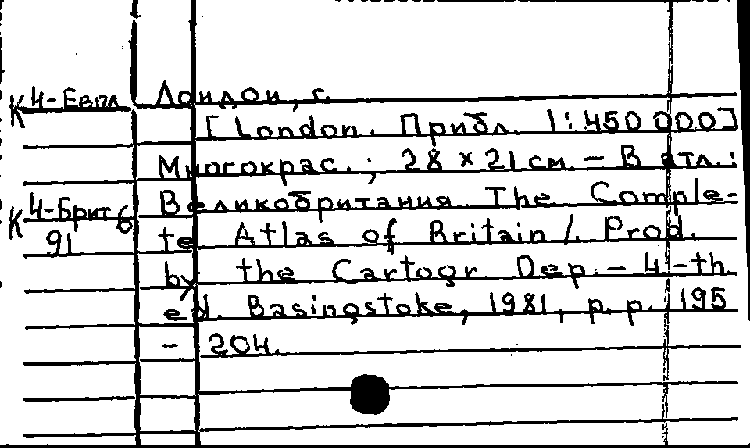 К Ч-Евпл Лондон, г.
[London. Прибл. 1:450 000]
Многокрас.; 28 × 21 см. – В атл.:
К Ч-Брит Великобритания The Comple-
91 б te Atlas of Britain /. Prod.
by the Cartogr Dep. – 4-th
ed. Basingstoke, 1981, p. p. 195
– 204.